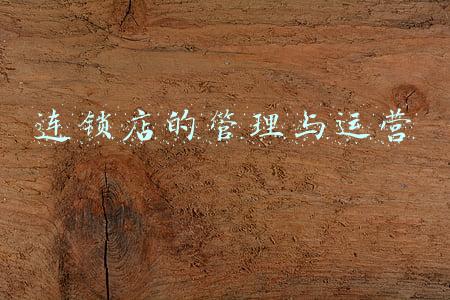 连锁店的管理与运营